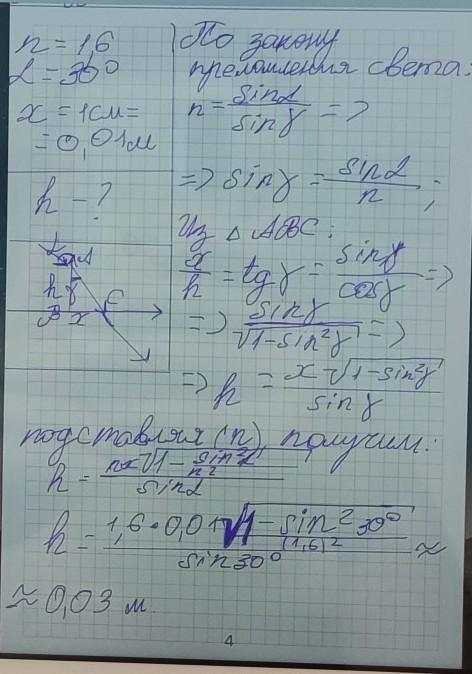 n = 1,6
α = 30°
x = 1 см =
= 0,01 м
h - ?
α
A
h γ
B x C
По закону
преломления света:
n = sinα / sinγ =>
=> sinγ = sinα / n ;
Из △ ABC:
x/h = tgγ = sinγ / cosγ =>
=> sinγ / √(1-sin²γ) =>
=> h = x·√(1-sin²γ) / sinγ
подставляя (n), получим:
h = nx√(1 - sin²α/n²) / sinα
h = 1,6·0,01√(1 - sin²30°/(1,6)²) / sin30° ≈
≈ 0,03 м.
4